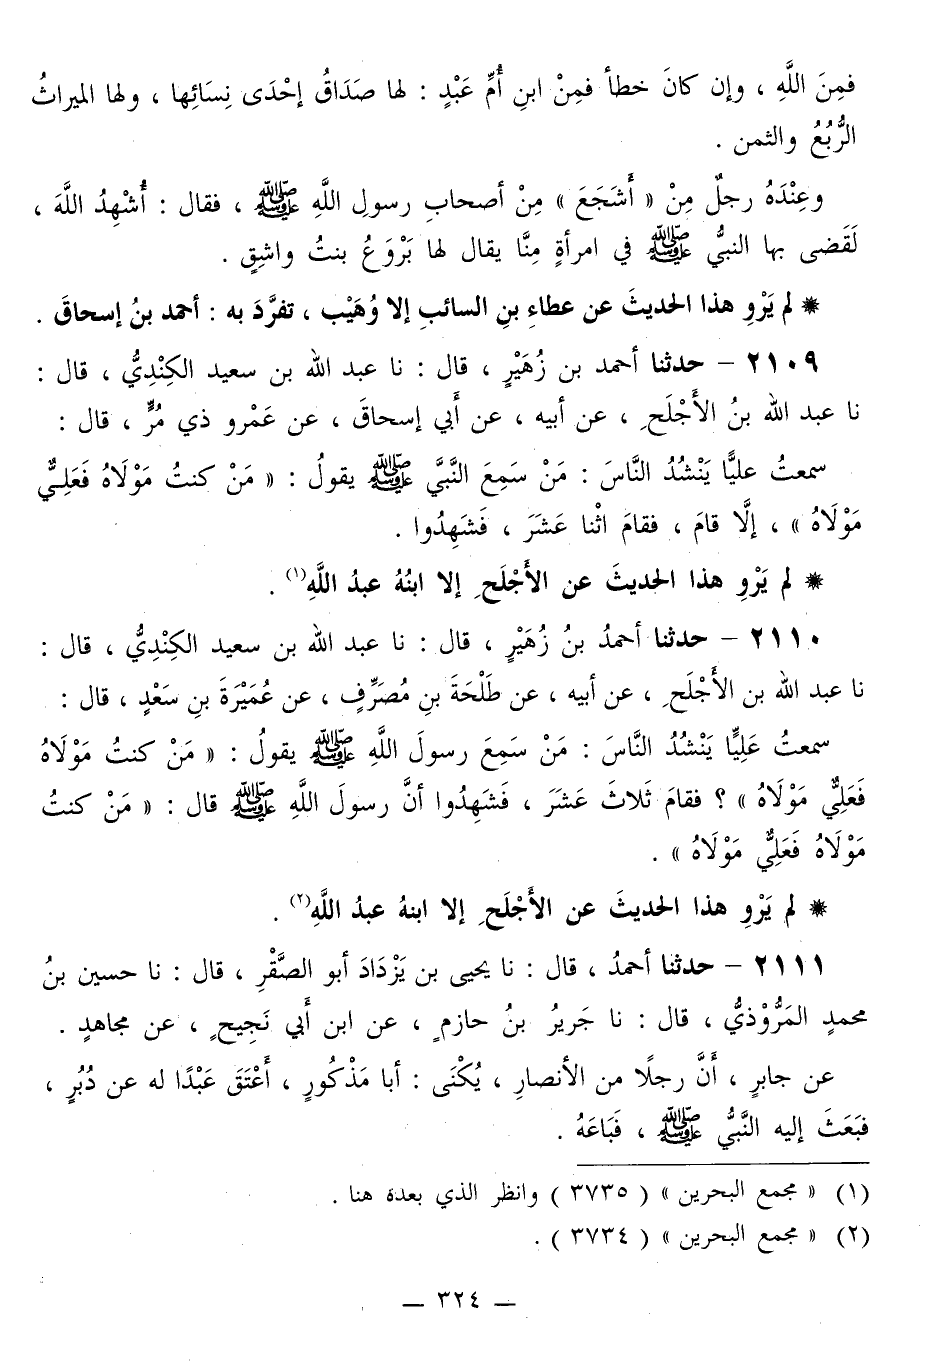 فمِنَ اللَّهِ ، وإن كانَ خطأ فمِنْ ابنِ أُمِّ عَبْدٍ : لها صَدَاقُ إحْدَى نِسَائِها ، ولها الميراثُ
الرُّبُعُ والثمن .
وعِنْدَهُ رجلٌ مِنْ « أَشَجَعَ » مِنْ أصحابِ رسولِ اللَّهِ ﷺ ، فقال : أُشْهِدُ اللهَ ،
لَقَضى بها النبيُّ ﷺ في امرأةٍ مِنَّا يقال لها بَرْوَعُ بنتُ واشِقٍ .
* لم يَرْوِ هذا الحديثَ عن عطاءِ بنِ السائبِ إلا وُهَيْب ، تفرَّدَ به : أحمد بنُ إسحاقَ .
٢١٠٩ – حدثنا أحمد بن زُهَيْرٍ ، قال : نا عبد الله بن سعيد الكِنْدِيُّ ، قال :
نا عبد الله بنُ الأَجْلَحِ ، عن أبيه ، عن أَبي إسحاقَ ، عن عَمْرو ذي مُرٍّ ، قال :
سمعتُ عليًّا يَنْشُدُ النَّاسَ : مَنْ سَمِعَ النَّبيَّ ﷺ يقولُ : « مَنْ كنتُ مَوْلَاهُ فَعَلِيٌّ
مَوْلَاهُ » ، إلَّا قامَ ، فقامَ اثْنا عَشَرَ ، فَشَهِدُوا .
* لم يَرْوِ هذا الحديثَ عن الأَجْلَحِ إلا ابنُهُ عبدُ اللَّهِ(١) .
٢١١٠ – حدثنا أحمدُ بنُ زُهَيْرٍ ، قال : نا عبد الله بن سعيد الكِنْدِيُّ ، قال :
نا عبد الله بن الأَجْلَحِ ، عن أبيه ، عن طَلْحَةَ بنِ مُصَرِّفٍ ، عن عُمَيْرَةَ بنِ سَعْدٍ ، قال :
سمعتُ عَلِيًّا يَنْشُدُ النَّاسَ : مَنْ سَمِعَ رسولَ اللَّهِ ﷺ يقولُ : « مَنْ كنتُ مَوْلَاهُ
فَعَلِيٌّ مَوْلَاهُ » ؟ فقامَ ثَلاثَ عَشَرَ ، فَشَهِدُوا أنَّ رسولَ اللَّهِ ﷺ قال : « مَنْ كنتُ
مَوْلَاهُ فَعَلِيٌّ مَوْلَاهُ » .
* لم يَرْوِ هذا الحديثَ عن الأَجْلَحِ إلا ابنهُ عبدُ اللَّهِ(٢) .
٢١١١ – حدثنا أحمدُ ، قال : نا يحيى بن يَزْدَادَ أبو الصَّقْرِ ، قال : نا حسين بنُ
محمدٍ المَرُّوْذيُّ ، قال : نا جَريرُ بنُ حازمٍ ، عن ابن أَبي نَجِيحٍ ، عن مجاهدٍ .
عن جابرٍ ، أَنَّ رجلًا من الأنصارِ ، يُكْنَى : أبا مَذْكُورٍ ، أَعْتَقَ عَبْدًا له عن دُبُرٍ ،
فبَعَثَ إليه النَّبيُّ ﷺ ، فَبَاعَهُ .
(١) « مجمع البحرين » ( ٣٧٣٥ ) وانظر الذي بعده هنا .
(٢) « مجمع البحرين » ( ٣٧٣٤ ) .
— ٣٢٤ —